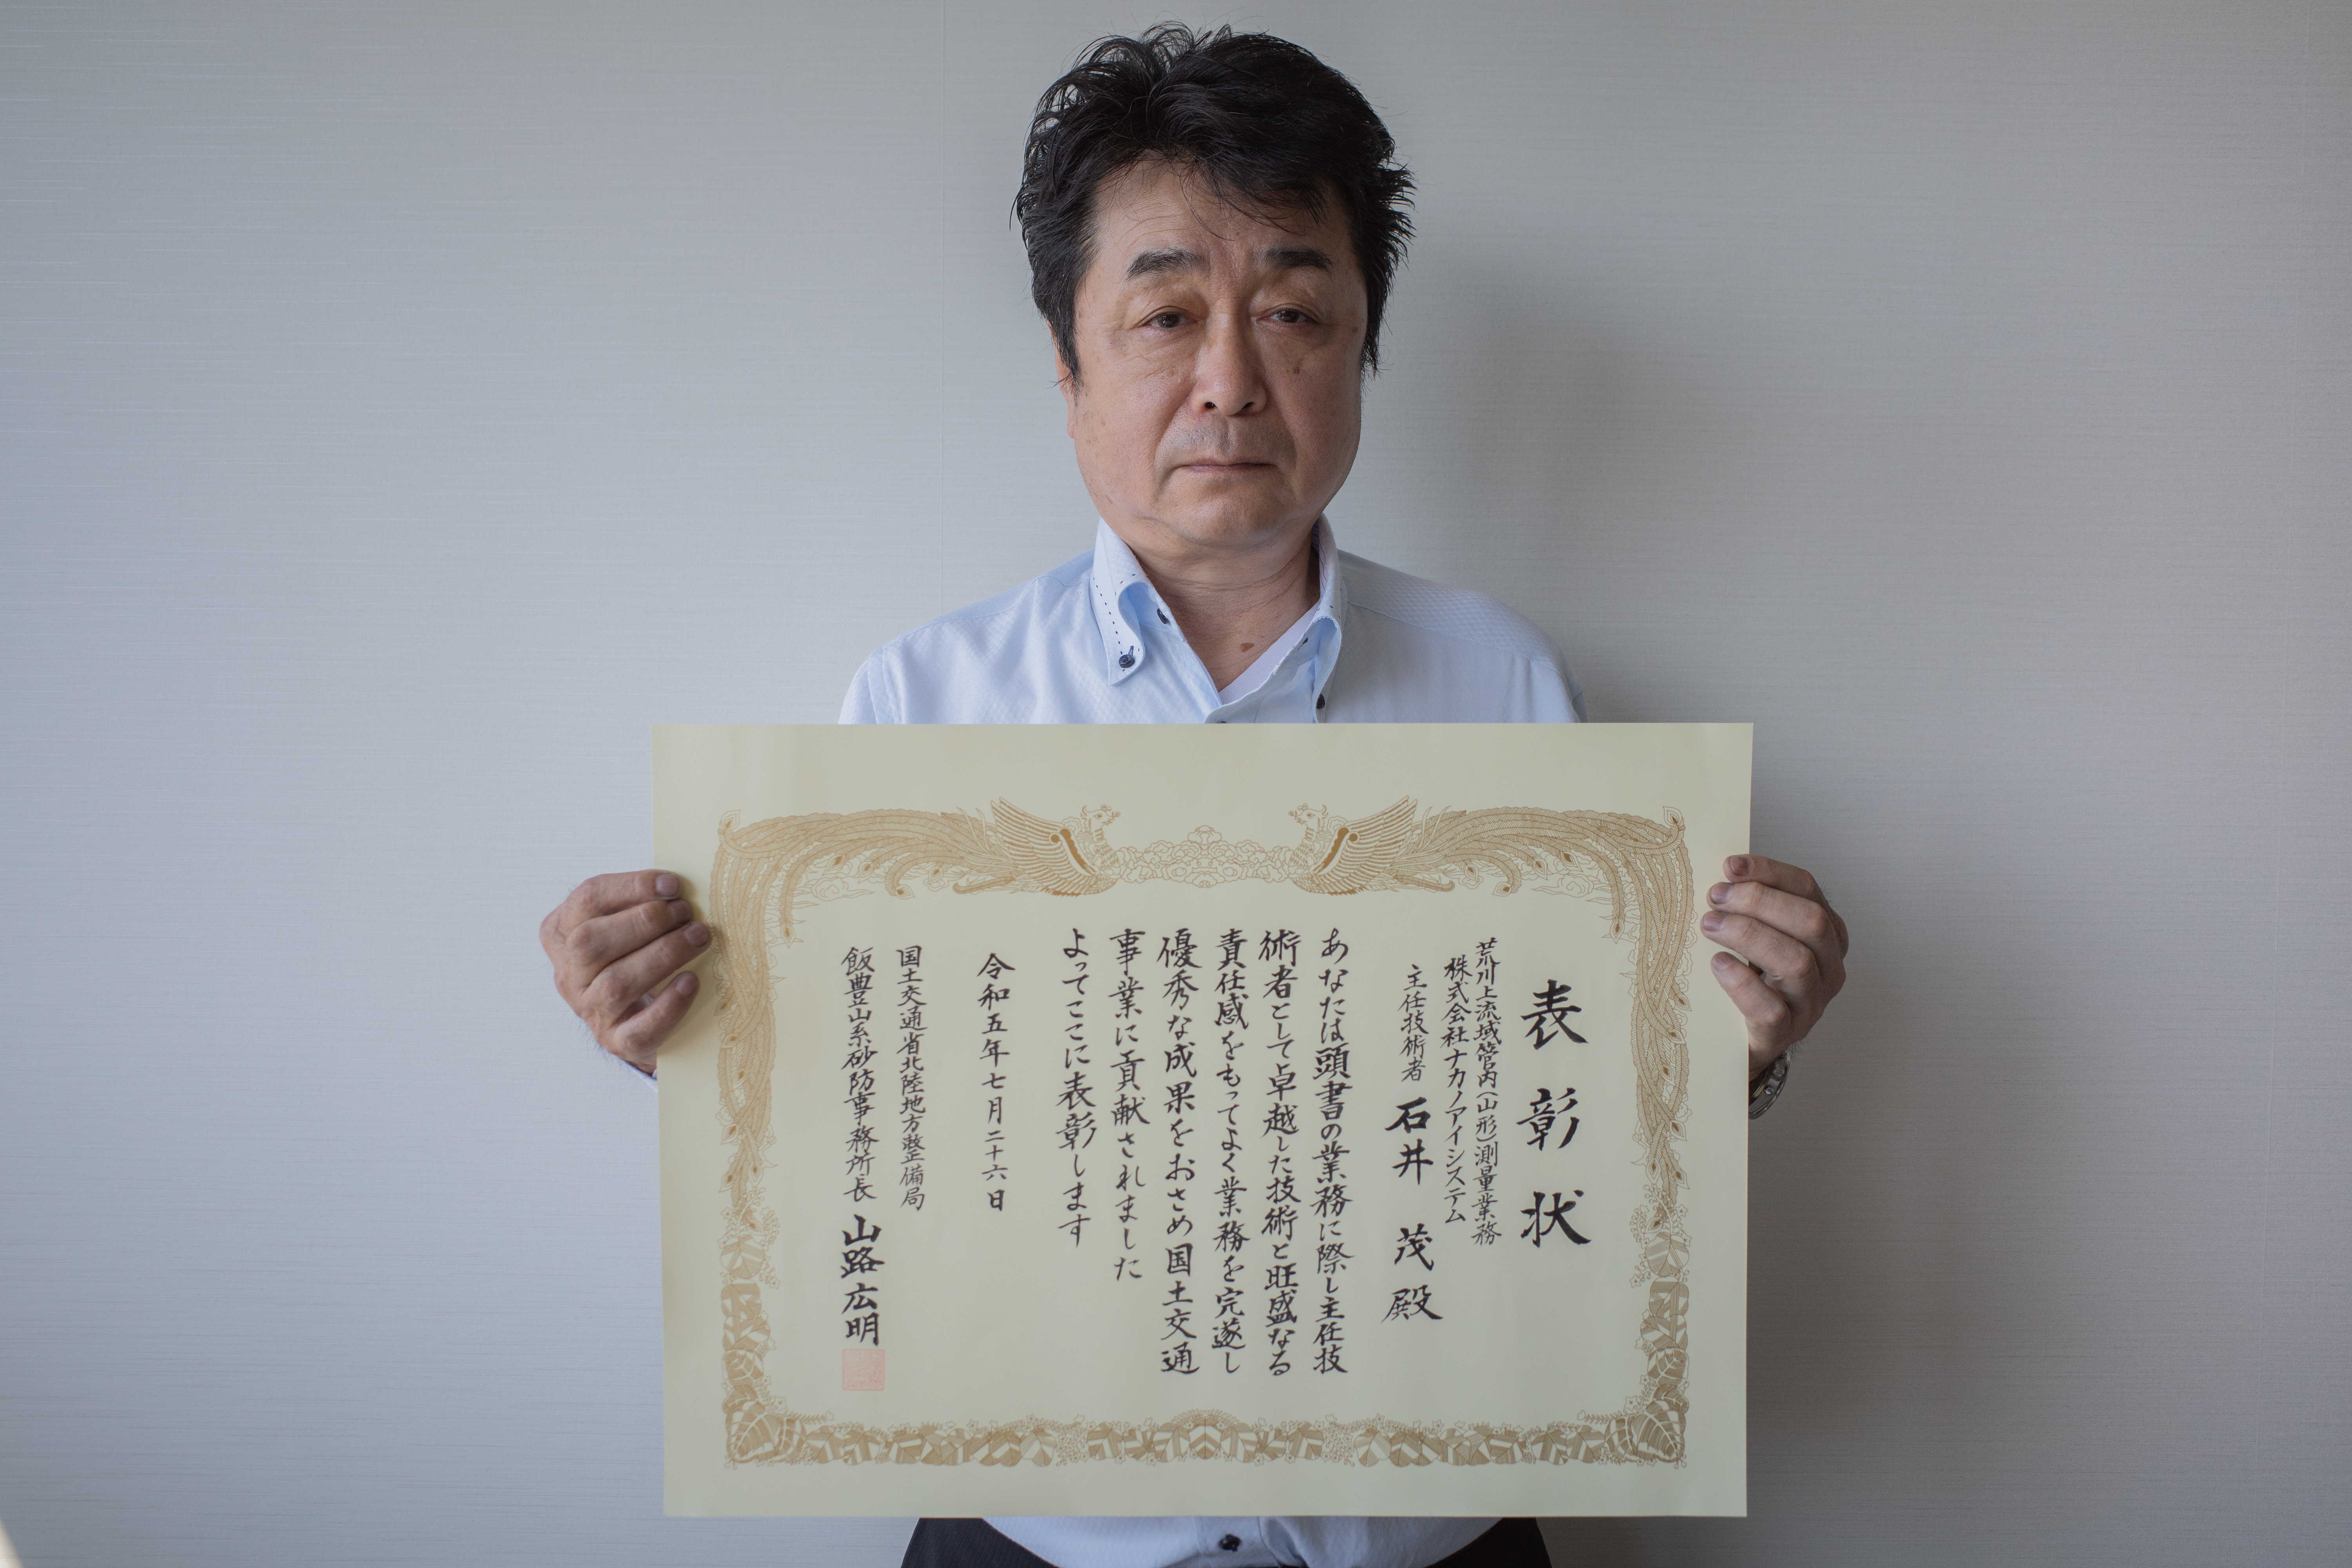 表彰状
荒川上流域管内(山形)測量業務
株式会社ナカノアイシステム
主任技術者 石井 茂 殿
あなたは頭書の業務に際し主任技
術者として卓越した技術と旺盛なる
責任感をもってよく業務を完遂し
優秀な成果をおさめ国土交通
事業に貢献されました
よってここに表彰します
令和五年七月二十六日
国土交通省北陸地方整備局
飯豊山系砂防事務所長 山路広明